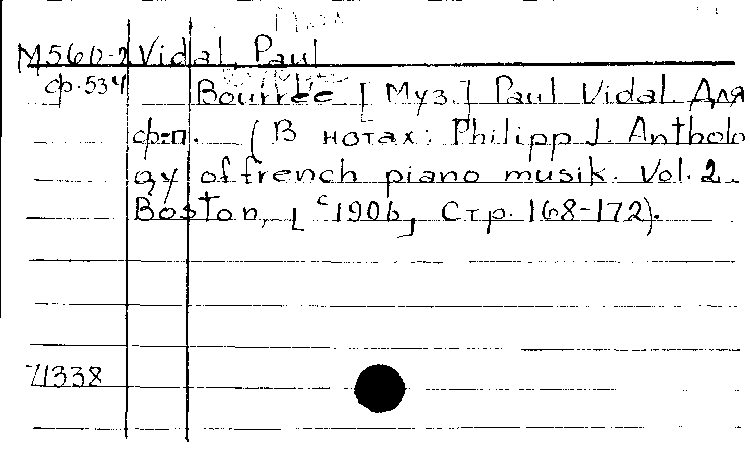 М560-2 Vidal, Paul
ф.534 Bourrée [Муз.] Paul Vidal. Для
ф-п. (В нотах: Philipp J. Antholo
gy of french piano musik. Vol. 2.
Boston, [c1906], Стр. 168-172).
71338